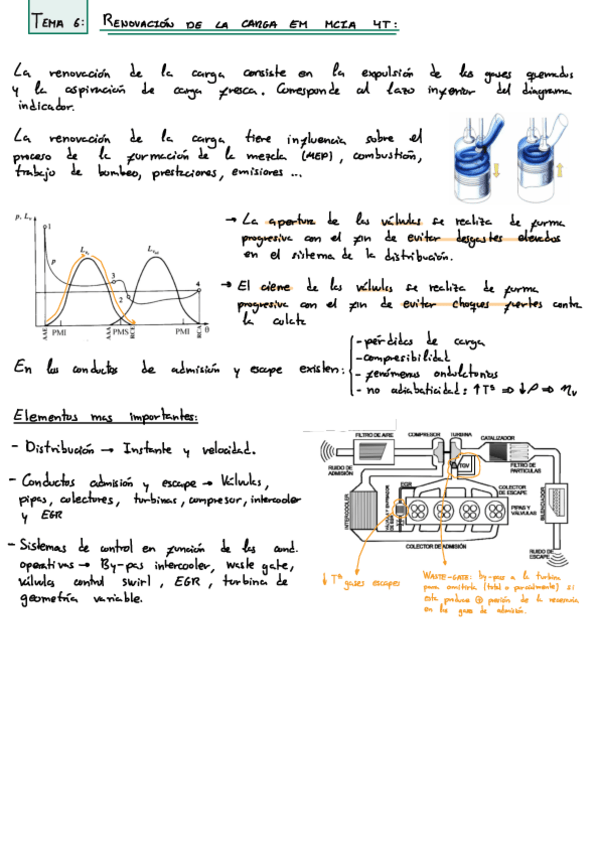 TEMA 6: RENOVACIÓN DE LA CARGA EM MCIA 4T:
La renovación de la carga consiste en la expulsión de los gases quemados
y la aspiración de carga fresca. Corresponde al lazo inferior del diagrama
indicador.
La renovación de la carga tiene influencia sobre el
proceso de la formación de la mezcla (MEP), combustión,
trabajo de bombeo, prestaciones, emisiones ...
p, Lv
1
p
Le
Lad
3
2
4
α
AAE
PMI
AAA
PMS
RCE
PMI
RCA
→ La apertura de las válvulas se realiza de forma
progresiva con el fin de evitar desgastes elevados
en el sistema de la distribución.
→ El cierre de las válvulas se realiza de forma
progresiva con el fin de evitar choques fuertes contra
la culata
En los conductos de admisión y escape existen:
- pérdidas de carga
- compresibilidad
- fenómenos ondulatorios
- no adiabaticidad: ↑Tª ⇒ ↓ρ ⇒ ηv
Elementos mas importantes:
- Distribución → Instante y velocidad.
- Conductos admisión y escape → Válvulas,
pipas, colectores, turbinas, compresor, intercooler
y EGR
- Sistemas de control en función de las cond.
operativas → By-pas intercooler, waste gate,
válvula control swirl, EGR, turbina de
geometría variable.
FILTRO DE AIRE
COMPRESOR
TURBINA
CATALIZADOR
RUIDO DE
ADMISIÓN
TGV
FILTRO DE
PARTICULAS
INTERCOOLER
EGR
COLECTOR
DE ESCAPE
PIPAS Y
VÁLVULAS
SILENCIADOR
COLECTOR DE ADMISIÓN
RUIDO DE
ESCAPE
↓ Tª
gases escapes
WASTE-GATE: by-pass a la turbina
para omitirla (total o parcialmente) si
esta produce presión de la necesaria
en los gases de admisión.